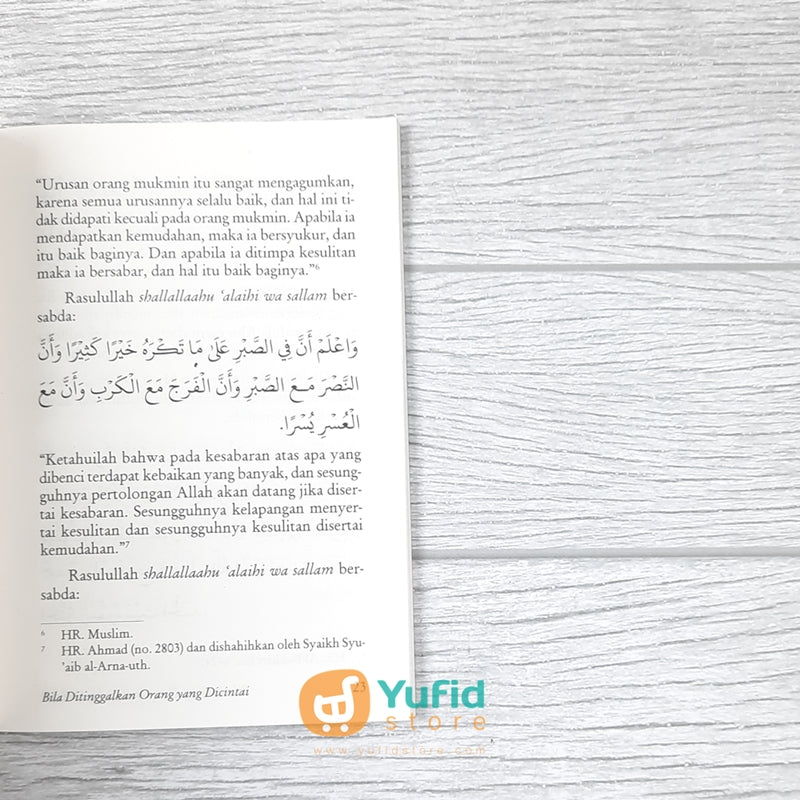 “Urusan orang mukmin itu sangat mengagumkan,
karena semua urusannya selalu baik, dan hal ini ti-
dak didapati kecuali pada orang mukmin. Apabila ia
mendapatkan kemudahan, maka ia bersyukur, dan
itu baik baginya. Dan apabila ia ditimpa kesulitan
maka ia bersabar, dan hal itu baik baginya.”⁶
Rasulullah shallallaahu ‘alaihi wa sallam ber-
sabda:
وَاعْلَمْ أَنَّ فِي الصَّبْرِ عَلَى مَا تَكْرَهُ خَيْرًا كَثِيْرًا وَأَنَّ
النَّصْرَ مَعَ الصَّبْرِ وَأَنَّ الْفَرَجَ مَعَ الْكَرْبِ وَأَنَّ مَعَ
الْعُسْرِ يُسْرًا.
“Ketahuilah bahwa pada kesabaran atas apa yang
dibenci terdapat kebaikan yang banyak, dan sesung-
guhnya pertolongan Allah akan datang jika diser-
tai kesabaran. Sesungguhnya kelapangan menyer-
tai kesulitan dan sesungguhnya kesulitan disertai
kemudahan.”⁷
Rasulullah shallallaahu ‘alaihi wa sallam ber-
sabda:
⁶ HR. Muslim.
⁷ HR. Ahmad (no. 2803) dan dishahihkan oleh Syaikh Syu-
’aib al-Arna-uth.
Bila Ditinggalkan Orang yang Dicintai 23
Yufid
store
www.yufidstore.com